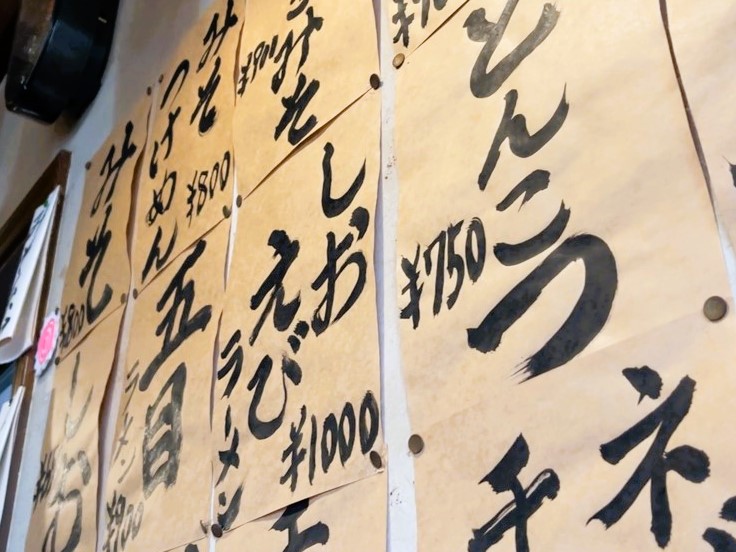 とんこつ
¥750
ネ
チ
みそ
¥900
しお
えび
ラーメン
¥1000
みそ
つけめん
¥800
五目
ラーメン
みそ
¥800
しお